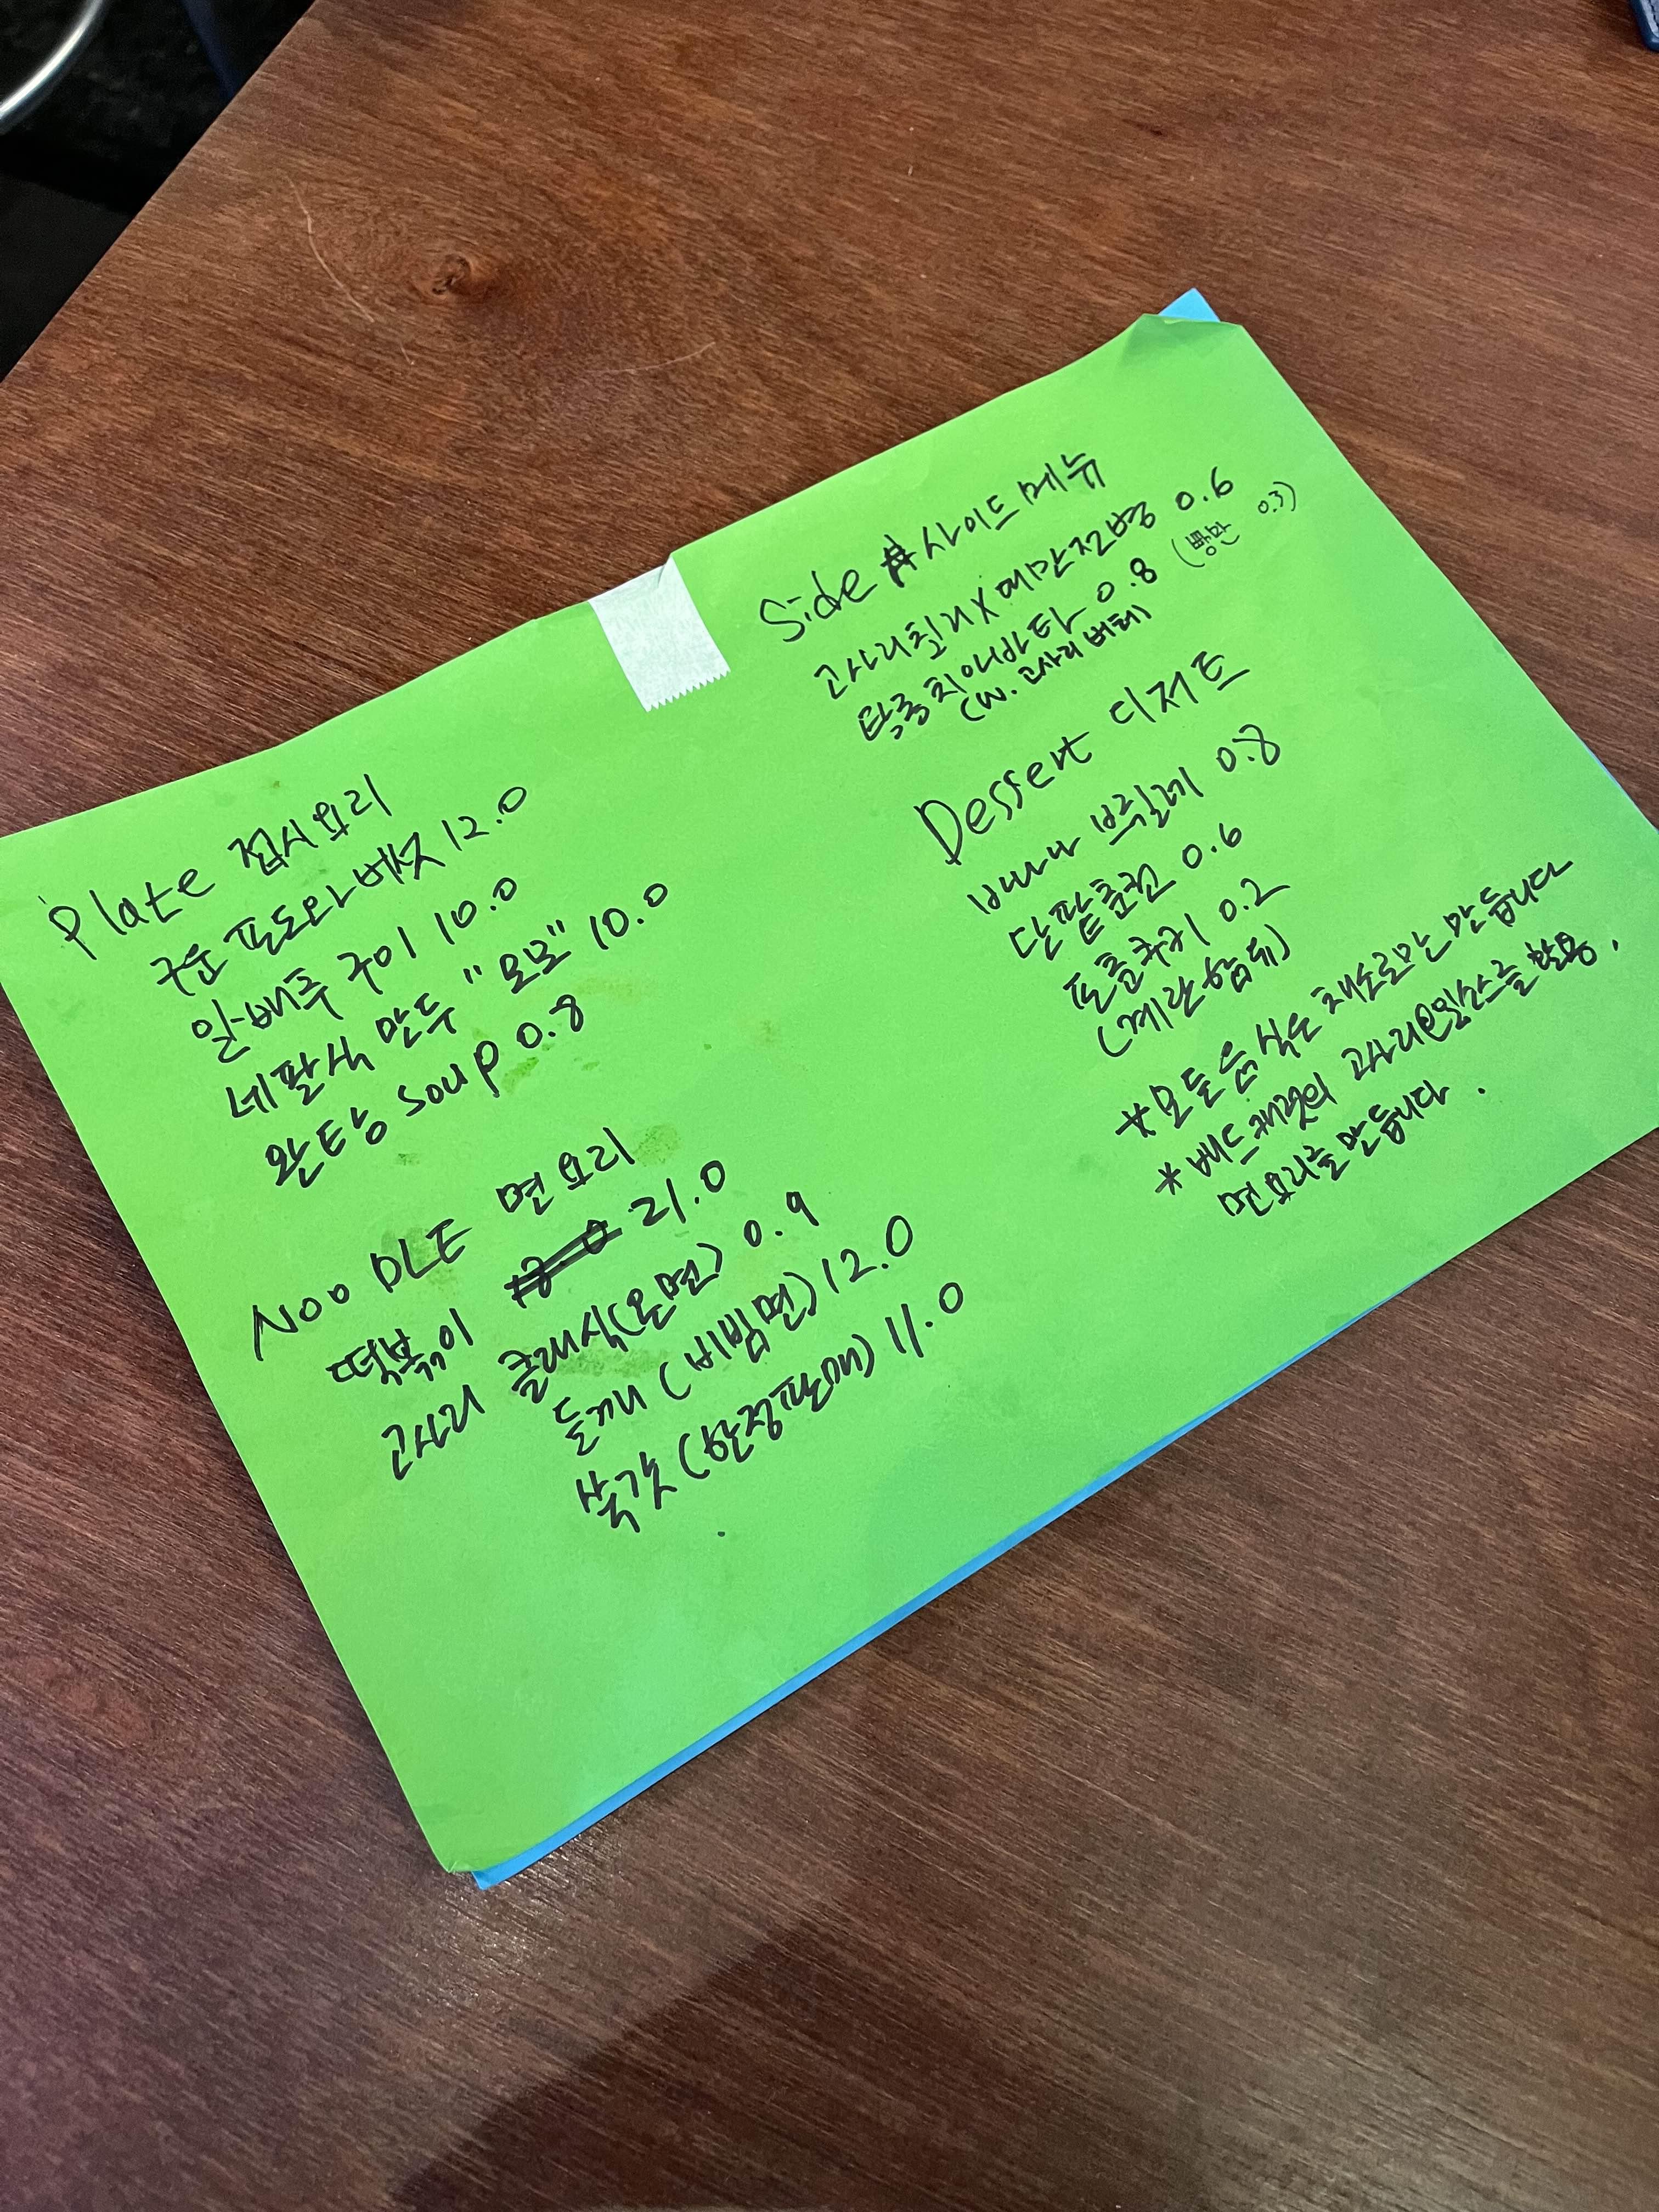 Plate 접시요리
구운 포도와 베주 12.0
알배추 구이 10.0
네팔식 만두 "모모" 10.0
완탕 soup 0.8
NOODLE 면요리
떡볶이 21.0
고사리 클래식(온면) 0.9
들깨 (비빔면) 12.0
쑥갓 (한정판매) 11.0
Side 사이드 메뉴
고사리칠리 X 메밀전병 0.6
탕종치아바타 0.8 (빵만 0.3)
(w. 고사리 버터)
Dessert 디저트
바나나 브륄레 0.8
단팥춘권 0.6
포춘쿠키 0.2
(계란함유)
*모든 음식은 채소로만 만듭니다
*배드캐럿의 고사리오일소스를 활용.
면요리를 만듭니다.